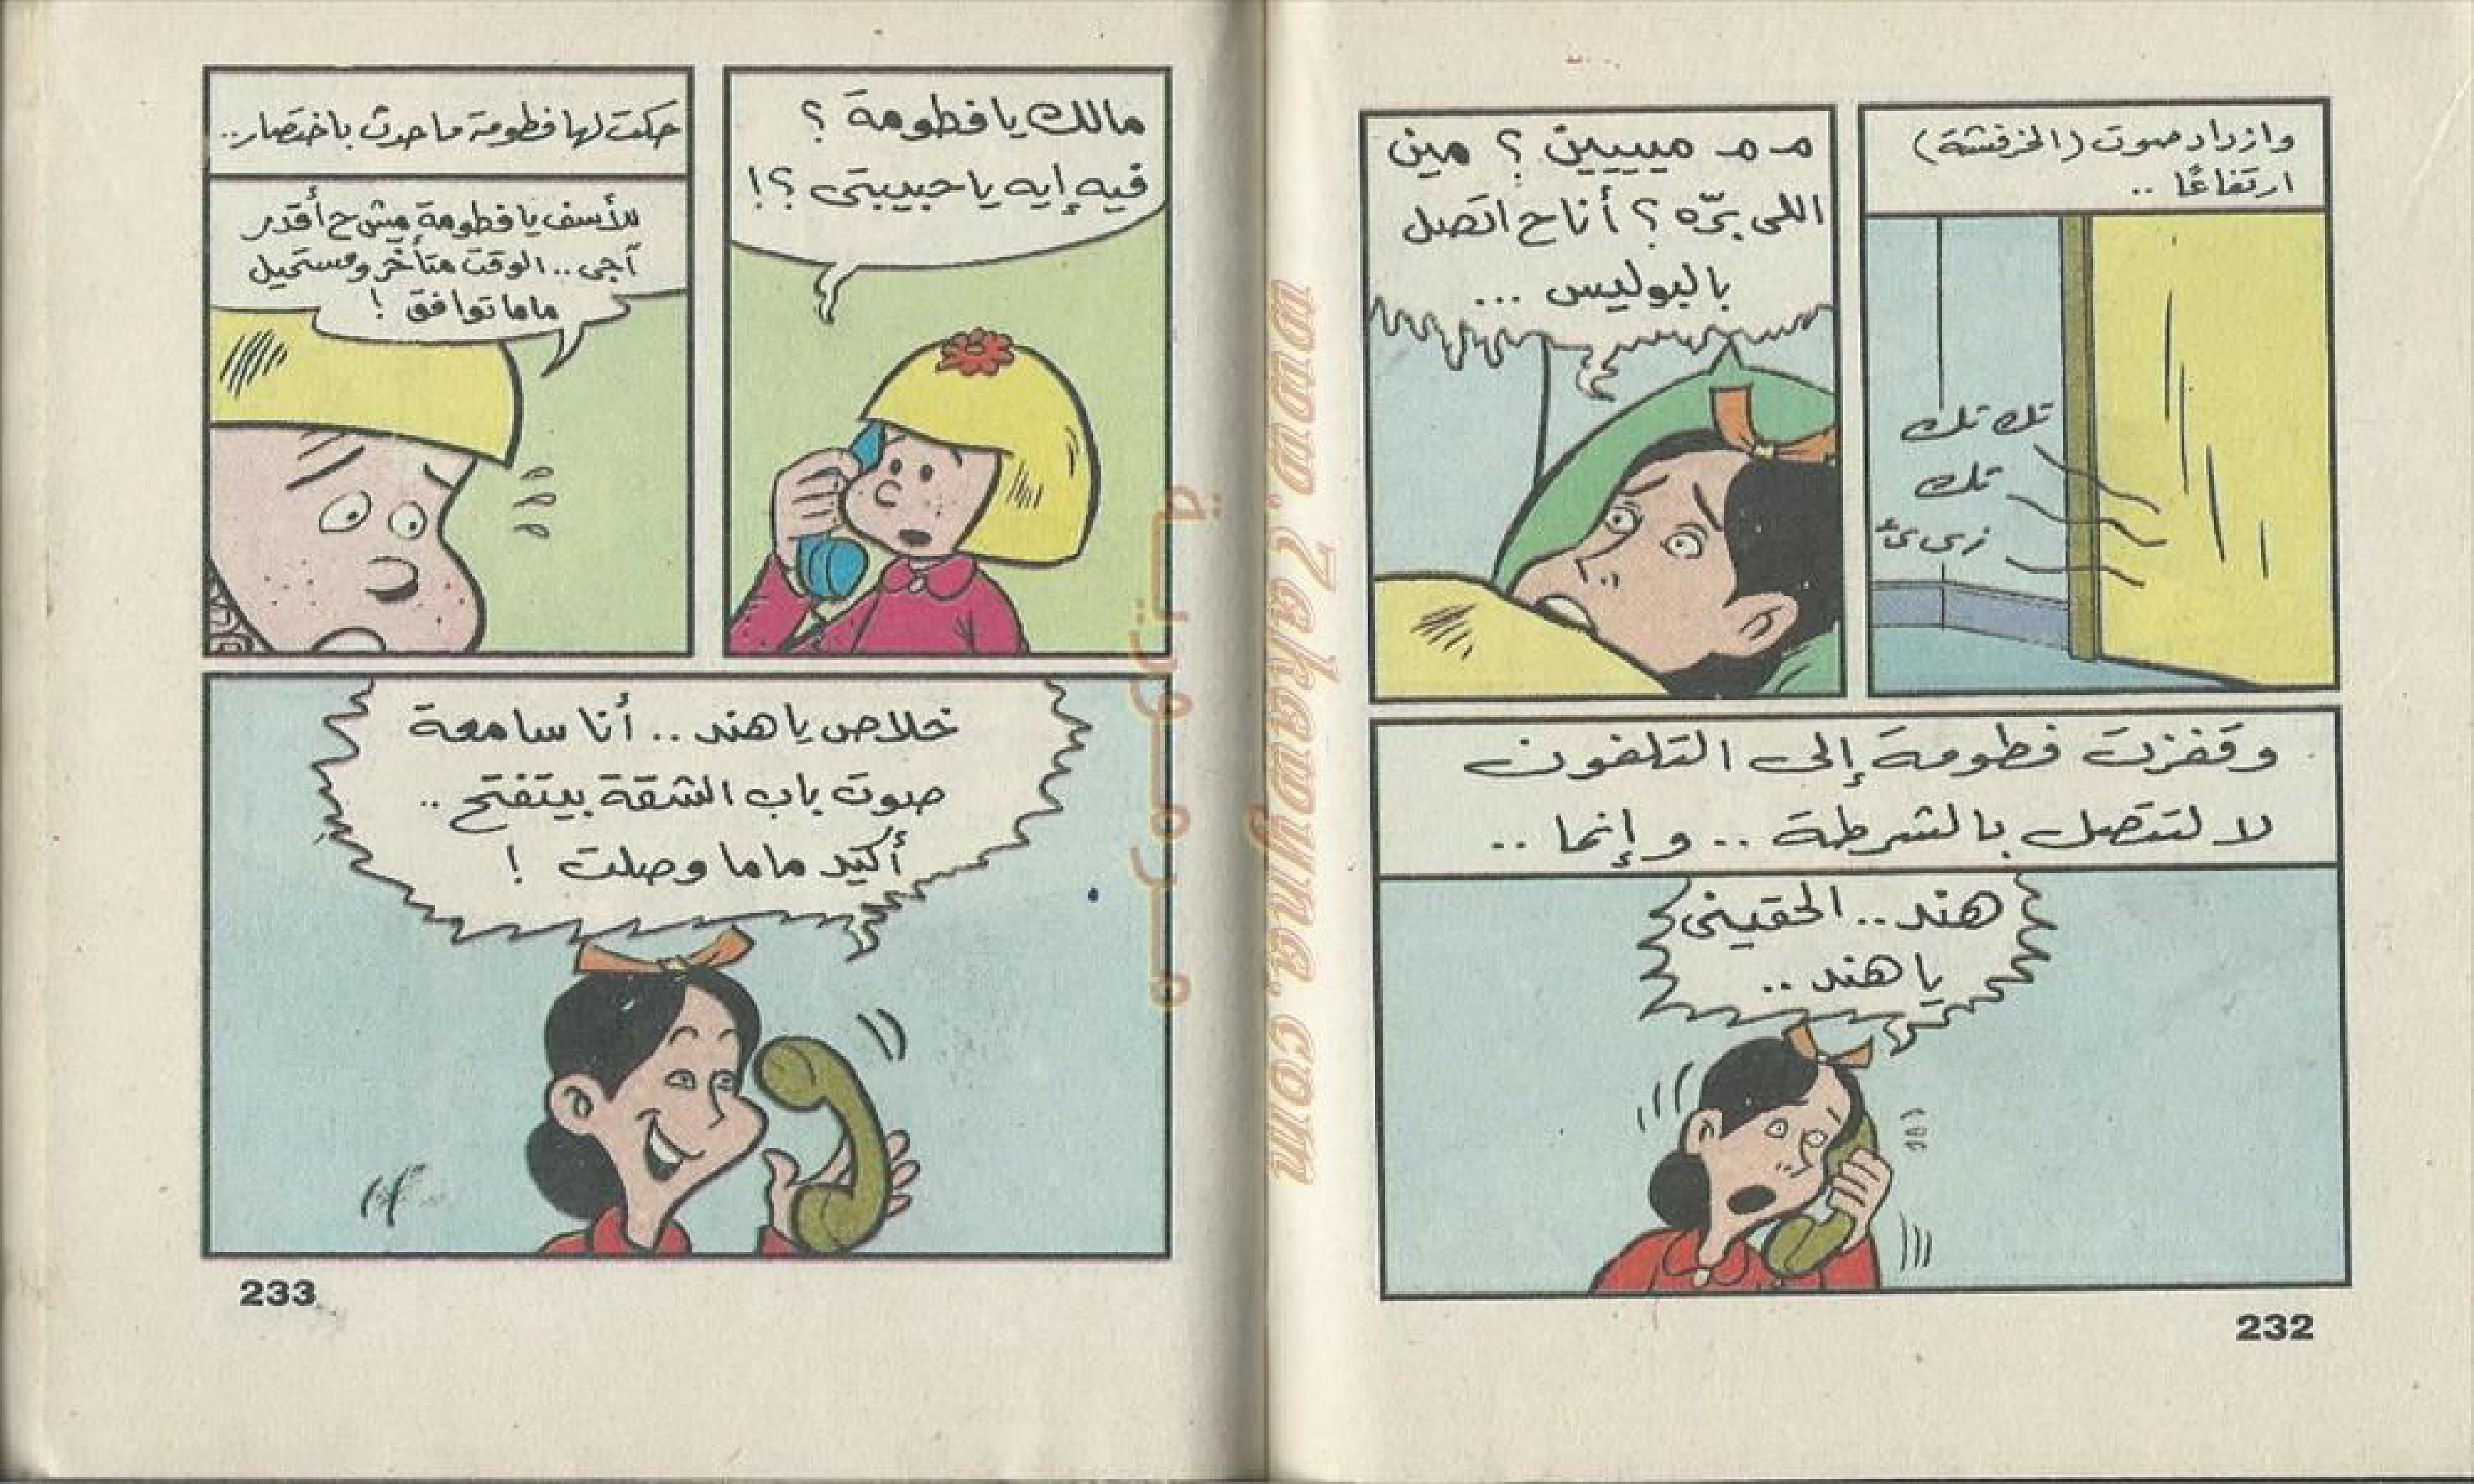 وازداد صوت (الخرفشة)
ارتفاعًا ..
تك تك
تك
زى ئ
م م مييين ؟ مين
اللى برّه ؟ أنا ح اتصل
بالبوليس ...
وقفزت فطومة إلى التلفون
لا لتتصل بالشرطة .. وإنما ..
هند .. الحقينى
يا هند ..
232
مالك يا فطومة ؟
فيه إيه يا حبيبتى ؟!
حكت لها فطومة ما حدث باختصار ..
للأسف يا فطومة مش ح أقدر
آجى .. الوقت متأخر ومستحيل
ماما توافق !
خلاص يا هند .. أنا سامعة
صوت باب الشقة بيتفتح ..
أكيد ماما وصلت !
233
مرمورية
www.Zakawyna.com